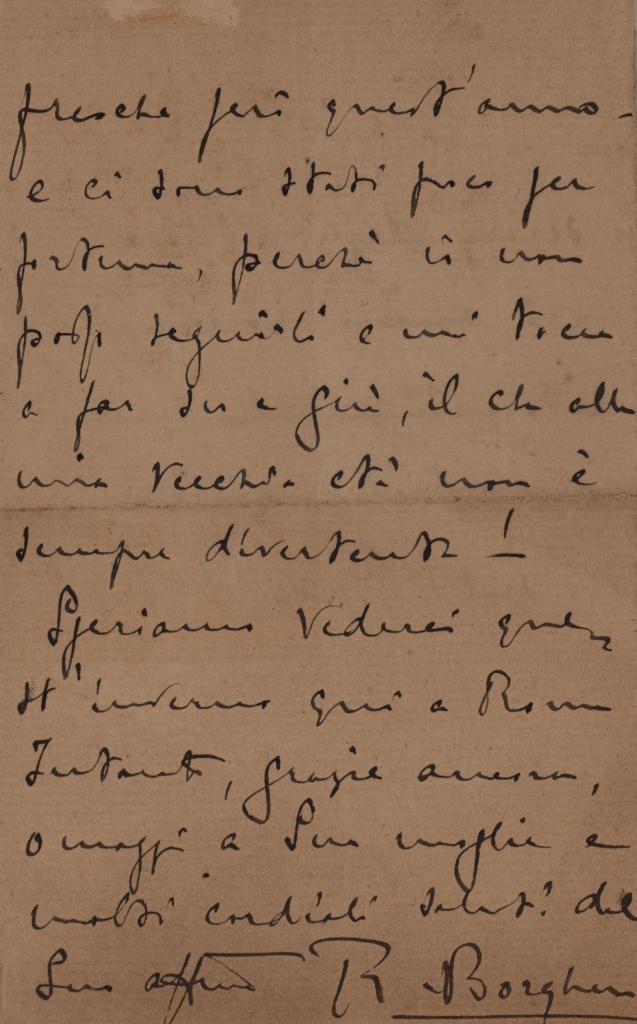 fresche però quest'anno -
e ci sono stati poco per
fortuna, perchè io non
posso seguirli e mi tocca
a far su e giù, il che alla
mia vecchia età non è
sempre divertente!
Speriamo vederci que-
st'inverno qui a Roma
Intanto, grazie ancora,
omaggi a Sua moglie e
molti cordiali saluti del
Suo affmo R Borghese